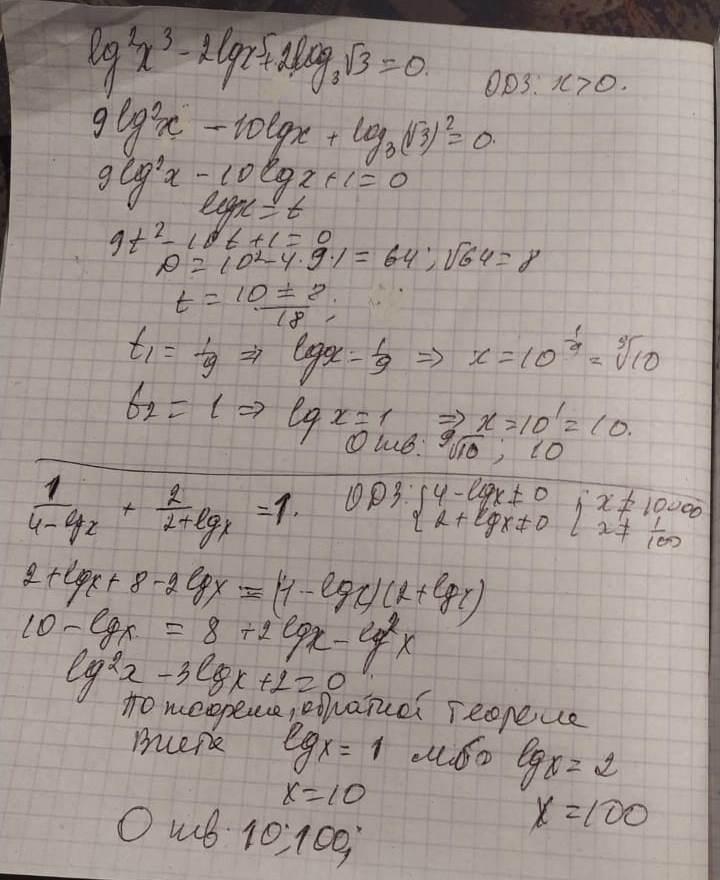 lg²x³ - 2lgx⁵ + 2log₃√3 = 0. ОДЗ: x>0.
9lg²x - 10lgx + log₃(√3)² = 0.
9lg²x - 10lgx + 1 = 0
lgx = t
9t² - 10t + 1 = 0
D = 10² - 4·9·1 = 64; √64 = 8
t = (10 ± 8)/18;
t₁ = 1/9 ⇒ lgx = 1/9 ⇒ x = 10^(1/9) = ⁹√10
t₂ = 1 ⇒ lgx = 1 ⇒ x = 10¹ = 10.
Отв: ⁹√10; 10
1/(4-lgx) + 2/(2+lgx) = 1. ОДЗ: { 4-lgx≠0 { x≠10000
2+lgx≠0 x≠1/100
2+lgx+8-2lgx = (4-lgx)(2+lgx)
10-lgx = 8+2lgx-lg²x
lg²x - 3lgx + 2 = 0
По теореме, обратной теореме
Виета lgx = 1 либо lgx = 2
x = 10 x = 100
Отв: 10; 100;